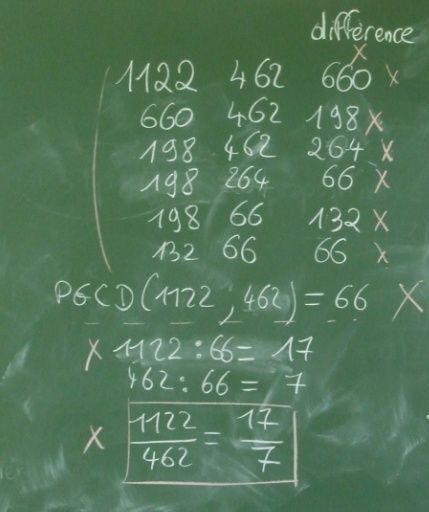 différence
1122 462 660 x
660 462 198 x
198 462 264 x
198 264 66 x
198 66 132 x
132 66 66 x
PGCD(1122, 462) = 66 x
x 1122 : 66 = 17
462 : 66 = 7
x 1122/462 = 17/7